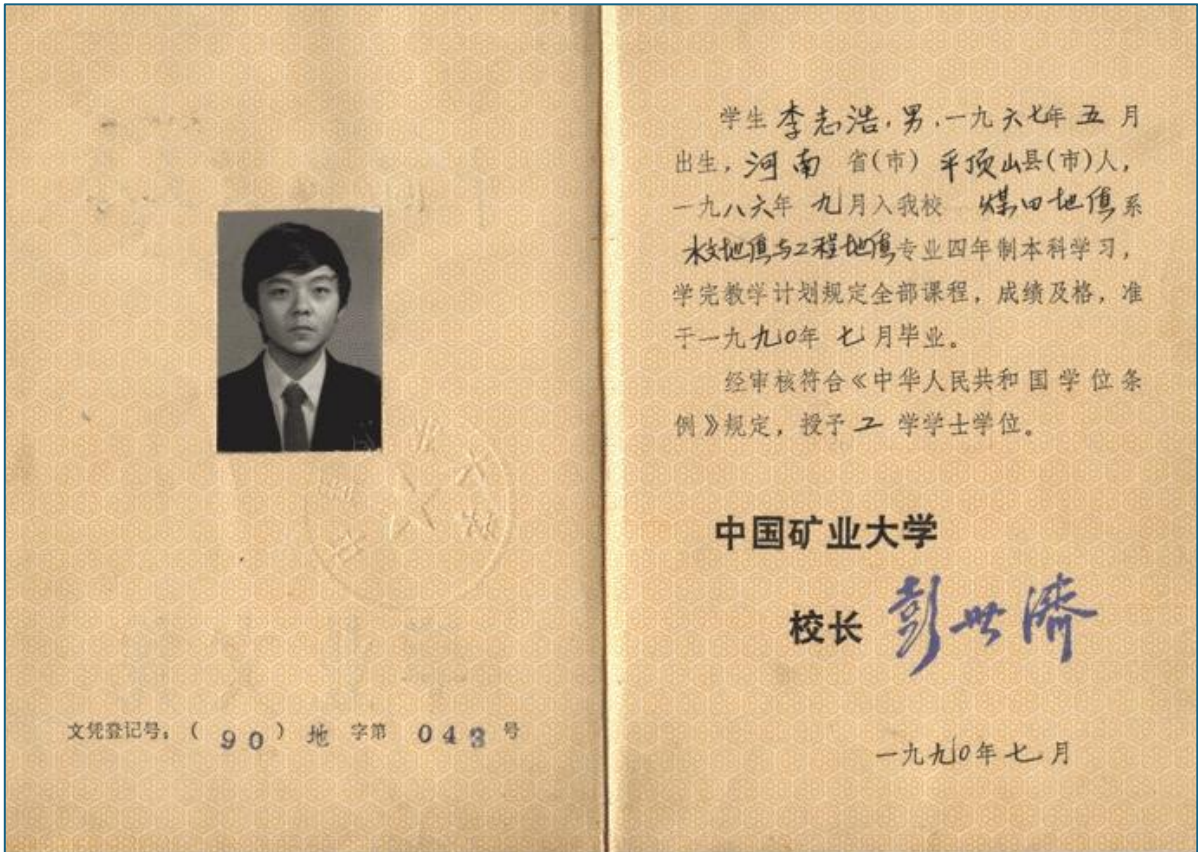 学生 李志浩，男，一九六七年 五 月
出生，河南 省(市) 平顶山县(市)人，
一九八六年 九月入我校 煤田地质系
水文地质与工程地质专业四年制本科学习，
学完教学计划规定全部课程，成绩及格，准
于一九九0年 七 月毕业。
经审核符合《中华人民共和国学位条
例》规定，授予 工 学学士学位。
中国矿业大学
校长 彭世济
一九九0年七月
文凭登记号：( 90 ) 地 字第 043 号